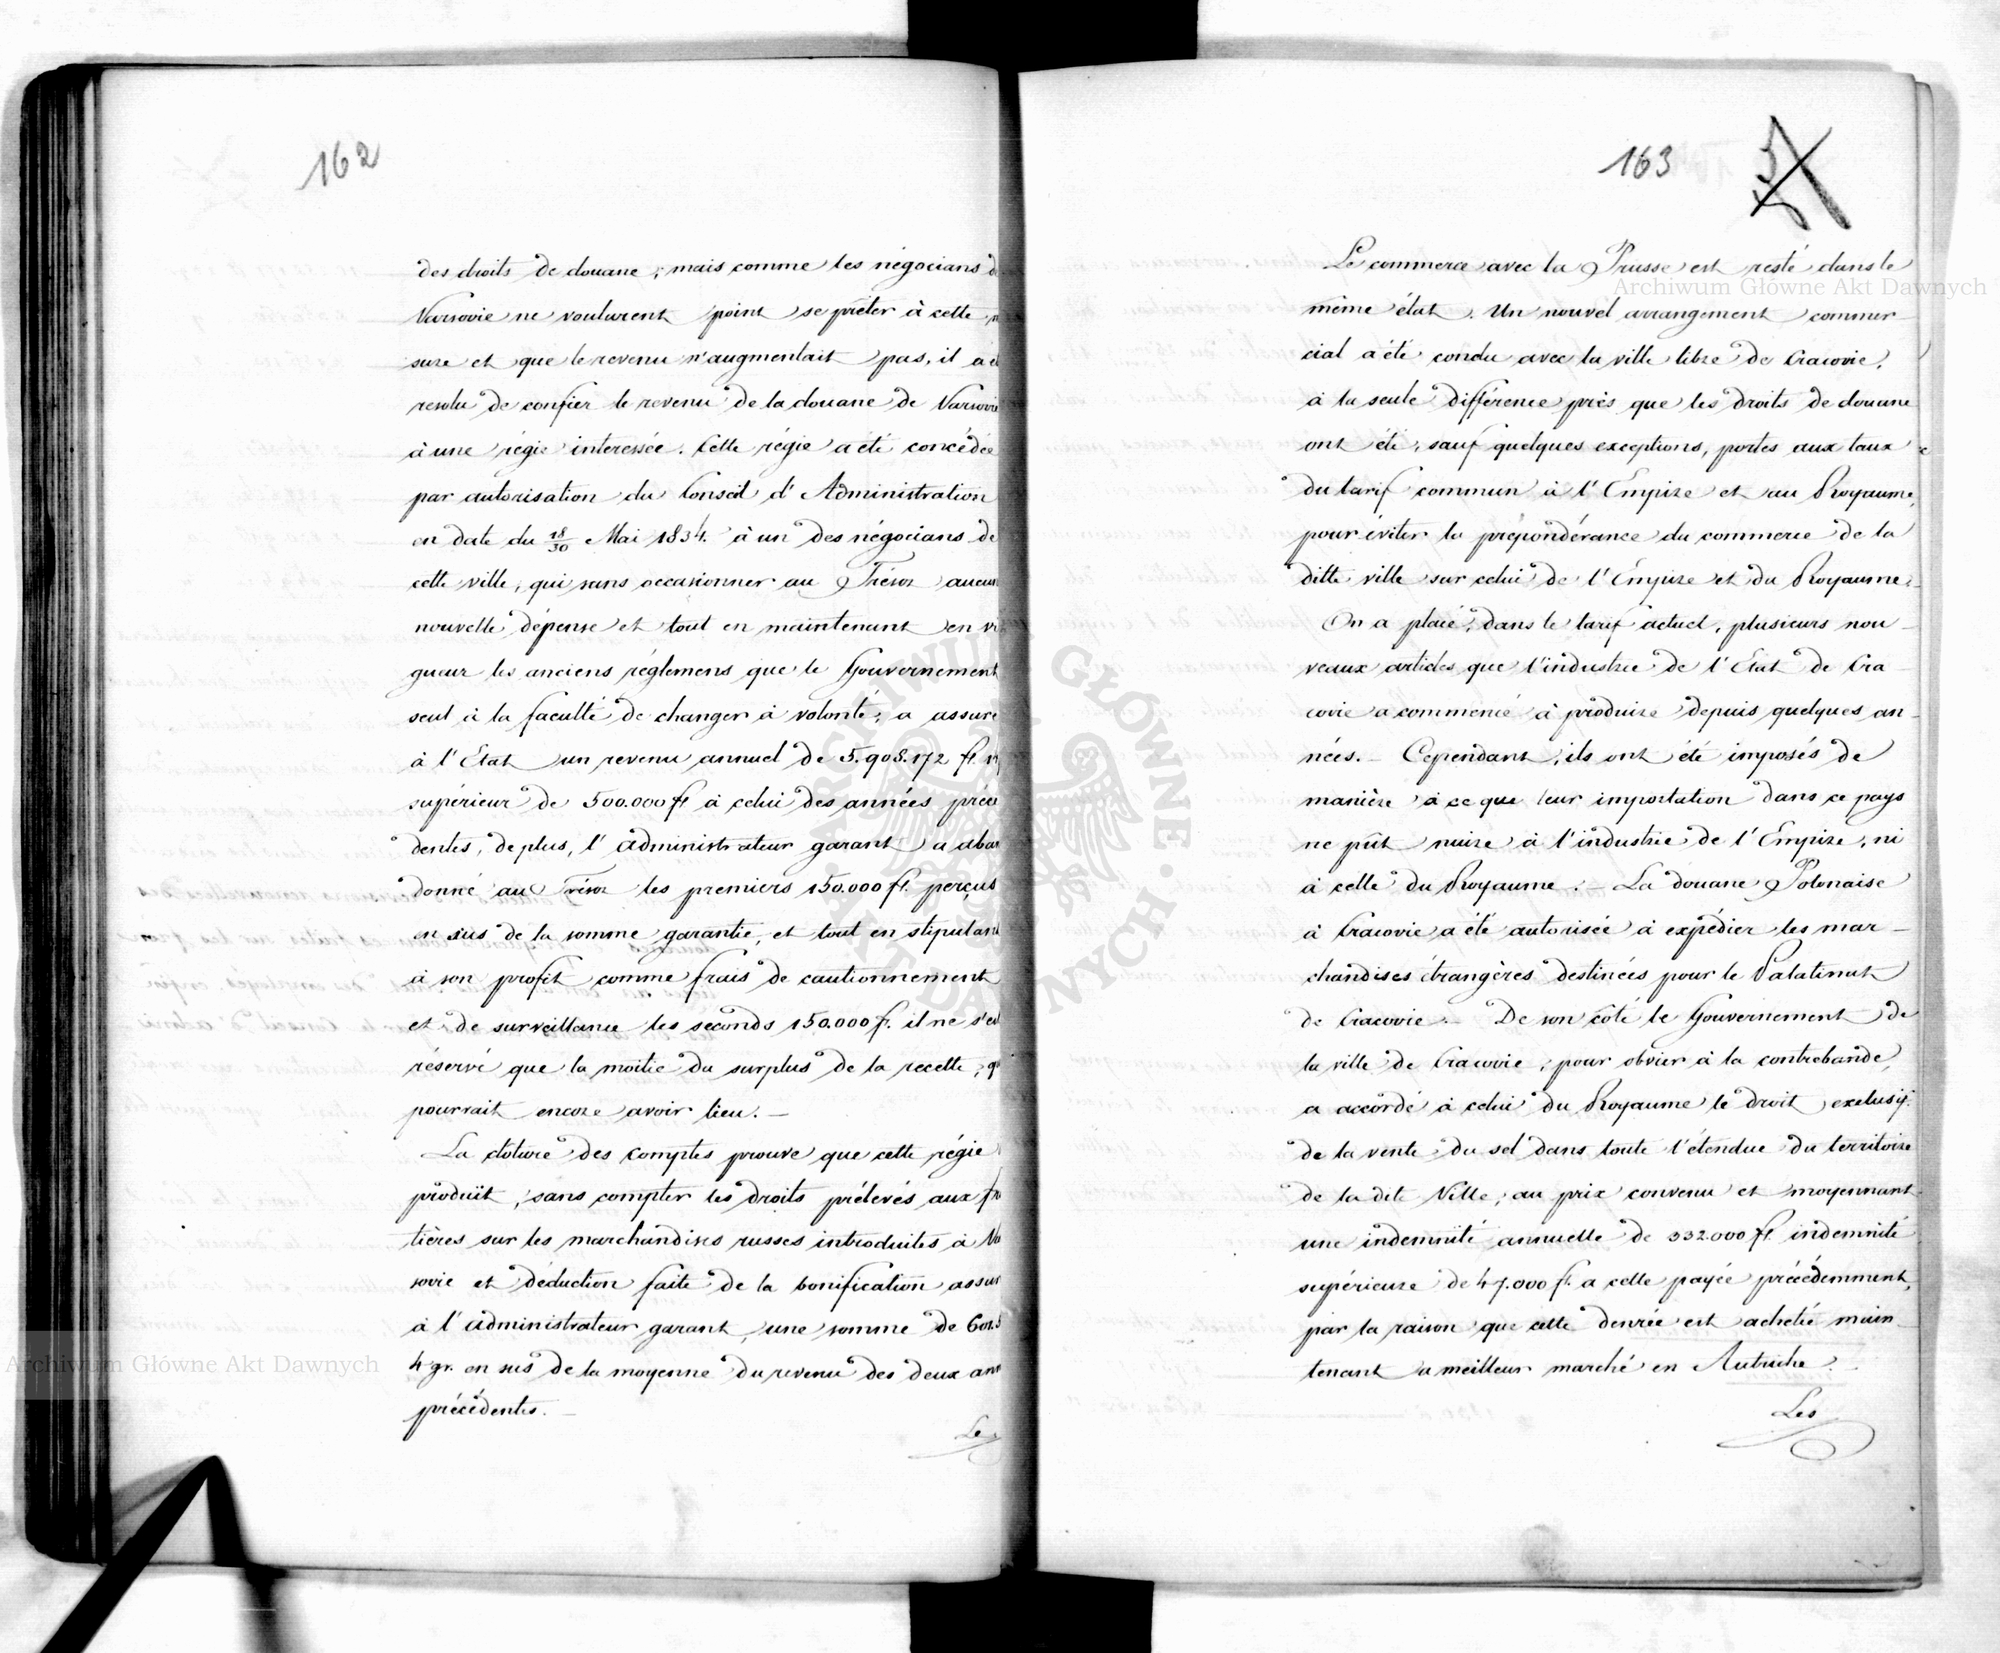 162
des droits de douane, mais comme les négocians d
Varsovie ne voulurent point se prêter à cette m
sure et que le revenu n'augmentait pas, il a é
resolu de confier le revenu de la douane de Varsovie
à une régie interessée. Cette régie a été concédée
par autorisation du Conseil d'Administration
en date du 18/30 Mai 1834. à un des négocians de
cette ville, qui sans occasionner au Trésor aucun
nouvelle dépense et tout en maintenant en vi
gueur les anciens réglemens que le Gouvernement
seul à la faculté de changer à volonté, a assuré
à l'Etat un revenu annuel de 5.908.172 fl.
supérieur de 500.000 fl à celui des années précé
dentes, de plus, l'administrateur garant a aban
donné au Trésor les premiers 150.000 fl. perçus
en sus de la somme garantie, et tout en stipulant
à son profit comme frais de cautionnement
et de surveillance les seconds 150.000 f. il ne s'est
réservé que la moitié du surplus de la recette, q
pourrait encore avoir lieu. —
La clôture des comptes prouve que cette régie
produit, sans compter les droits prélevés aux fro
tières sur les marchandises russes introduites à Va
sovie et déduction faite de la bonification assur
à l'administrateur garant, une somme de 601.5
4 gr. en sus de la moyenne du revenu des deux ann
précédentes. —
Le
163
Le commerce avec la Prusse est resté dans le
même état. Un nouvel arrangement commer
cial a été conclu avec la ville libre de Cracovie,
à la seule différence près que les droits de douane
ont été, sauf quelques exceptions, portés aux taux
du tarif commun à l'Empire et au Royaume,
pour éviter la prépondérance du commerce de la
ditte ville sur celui de l'Empire et du Royaume.
On a placé, dans le tarif actuel, plusieurs nou —
veaux articles que l'industrie de l'Etat de Cra —
covie a commencé à produire depuis quelques an —
nées. — Cependant, ils ont été imposés de
manière à ce que leur importation dans ce pays
ne pût nuire à l'industrie de l'Empire, ni
à celle du Royaume. — La douane Polonaise
à Cracovie a été autorisée à expédier les mar —
chandises étrangères destinées pour le Palatinat
de Cracovie. — De son côté le Gouvernement de
la ville de Cracovie, pour obvier à la contrebande,
a accordé à celui du Royaume le droit exclusif
de la vente du sel dans toute l'étendue du territoire
de la dite Ville, au prix convenu et moyennant
une indemnité annuelle de 332.000 fl. indemnité
supérieure de 47.000 fl. a celle payée précédemment,
par la raison que cette denrée est acheté main —
tenant a meilleur marché en Autriche.
Les
Archiwum Główne Akt Dawnych
Archiwum Główne Akt Dawnych
ARCHIWUM GŁÓWNE AKT DAWNYCH